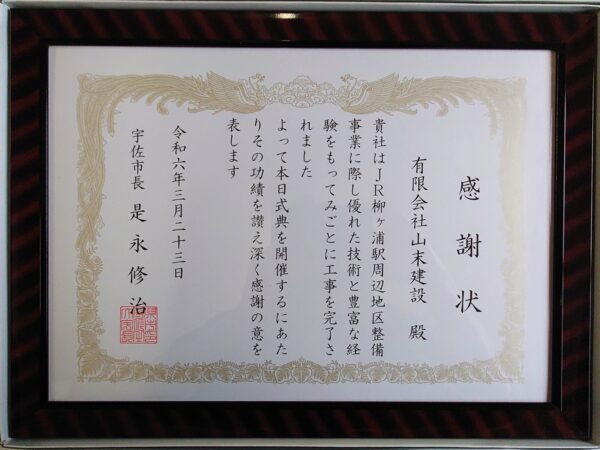 感謝状
有限会社山末建設 殿
貴社はJR柳ヶ浦駅周辺地区整備
事業に際し優れた技術と豊富な経
験をもってみごとに工事を完了さ
れました
よって本日式典を開催するにあた
りその功績を讃え深く感謝の意を
表します
令和六年三月二十三日
宇佐市長 是永修治